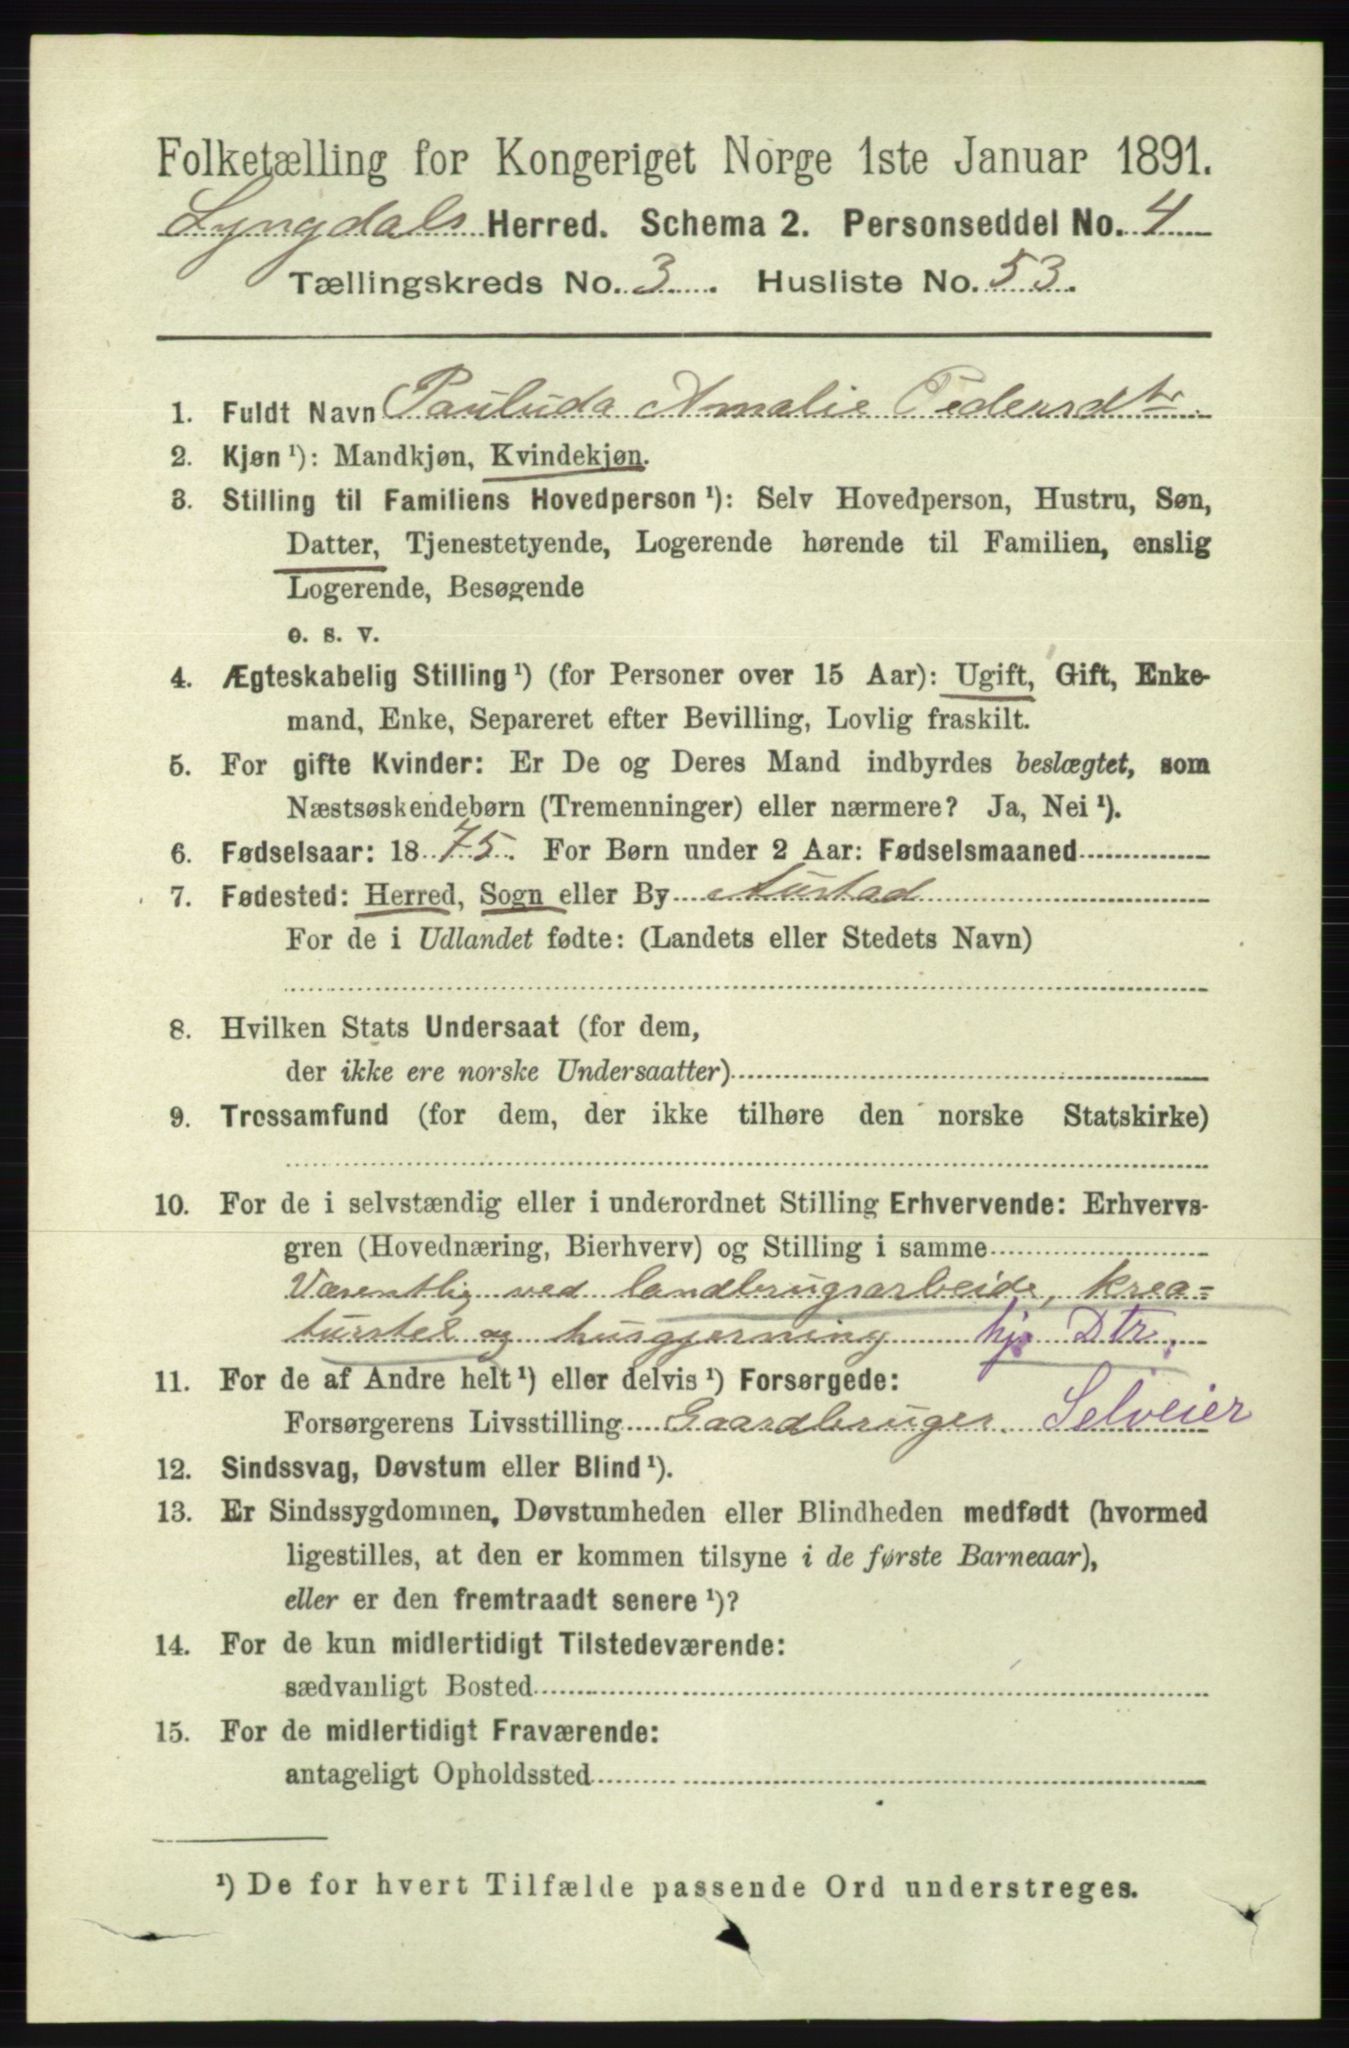 Folketælling for Kongeriget Norge 1ste Januar 1891.
Lyngdals Herred. Schema 2. Personseddel No. 4
Tællingskreds No. 3. Husliste No. 53.
1. Fuldt Navn Pauluda Amalie Pedersdtr.
2. Kjøn ¹): Mandkjøn, Kvindekjøn.
3. Stilling til Familiens Hovedperson ¹): Selv Hovedperson, Hustru, Søn,
Datter, Tjenestetyende, Logerende hørende til Familien, enslig
Logerende, Besøgende
o. s. v.
4. Ægteskabelig Stilling ¹) (for Personer over 15 Aar): Ugift, Gift, Enke-
mand, Enke, Separeret efter Bevilling, Lovlig fraskilt.
5. For gifte Kvinder: Er De og Deres Mand indbyrdes beslægtet, som
Næstsøskendebørn (Tremenninger) eller nærmere? Ja, Nei ¹).
6. Fødselsaar: 1875. For Børn under 2 Aar: Fødselsmaaned
7. Fødested: Herred, Sogn eller By Austad
For de i Udlandet fødte: (Landets eller Stedets Navn)
8. Hvilken Stats Undersaat (for dem,
der ikke ere norske Undersaatter)
9. Trossamfund (for dem, der ikke tilhøre den norske Statskirke)
10. For de i selvstændig eller i underordnet Stilling Erhvervende: Erhvervs-
gren (Hovednæring, Bierhverv) og Stilling i samme
Væsentlig ved landbrugsarbeide, krea=
turstel og husgjerning hj. Dtr.
11. For de af Andre helt ¹) eller delvis ¹) Forsørgede:
Forsørgerens Livsstilling Gaardbruger. Selveier
12. Sindssvag, Døvstum eller Blind ¹).
13. Er Sindssygdommen, Døvstumheden eller Blindheden medfødt (hvormed
ligestilles, at den er kommen tilsyne i de første Barneaar),
eller er den fremtraadt senere ¹)?
14. For de kun midlertidigt Tilstedeværende:
sædvanligt Bosted
15. For de midlertidigt Fraværende:
antageligt Opholdssted
¹) De for hvert Tilfælde passende Ord understreges.